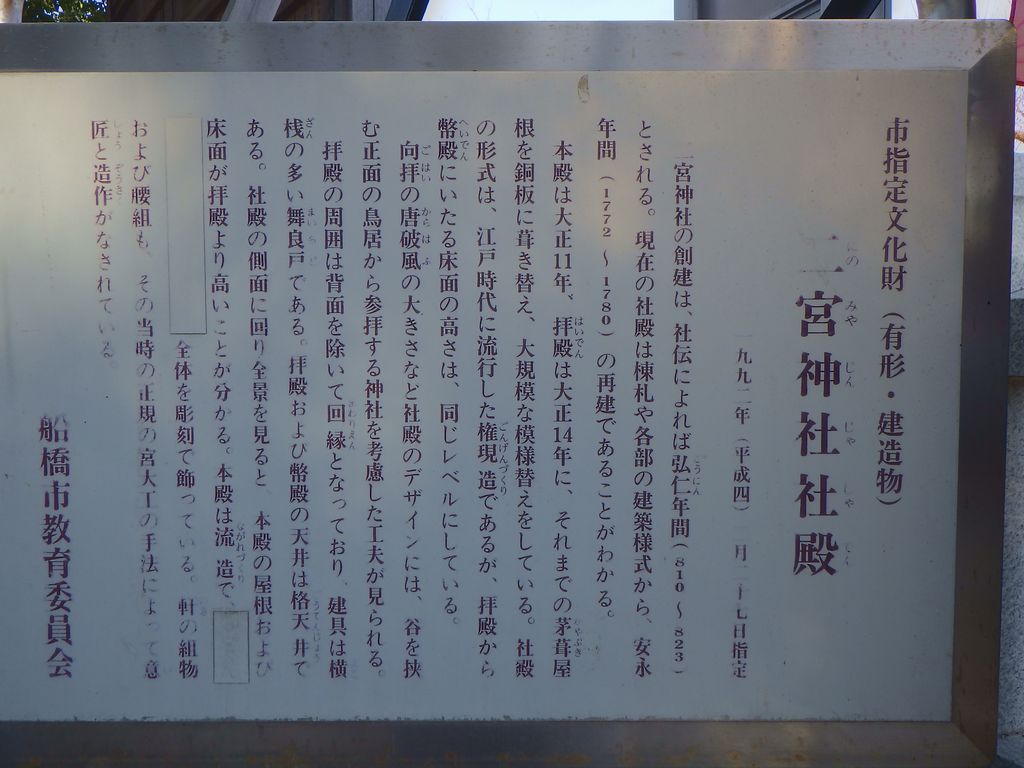 市指定文化財（有形・建造物）
二宮神社社殿
一九九二年（平成四）二月二十七日指定
二宮神社の創建は、社伝によれば弘仁年間（810～823）
とされる。現在の社殿は棟札や各部の建築様式から、安永
年間（1772～1780）の再建であることがわかる。
本殿は大正11年、拝殿は大正14年に、それまでの茅葺屋
根を銅板に葺き替え、大規模な模様替えをしている。社殿
の形式は、江戸時代に流行した権現造であるが、拝殿から
幣殿にいたる床面の高さは、同じレベルにしている。
向拝の唐破風の大きさなど社殿のデザインには、谷を挟
む正面の鳥居から参拝する神社を考慮した工夫が見られる。
拝殿の周囲は背面を除いて回縁となっており、建具は横
桟の多い舞良戸である。拝殿および幣殿の天井は格天井で
ある。社殿の側面に回り全景を見ると、本殿の屋根および
床面が拝殿より高いことが分かる。本殿は流造で、
全体を彫刻で飾っている。軒の組物
および腰組も、その当時の正規の宮大工の手法によって意
匠と造作がなされている。
船橋市教育委員会